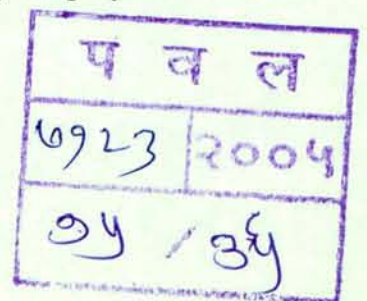 प व ल
७१२३ २००५
१५ / ३५